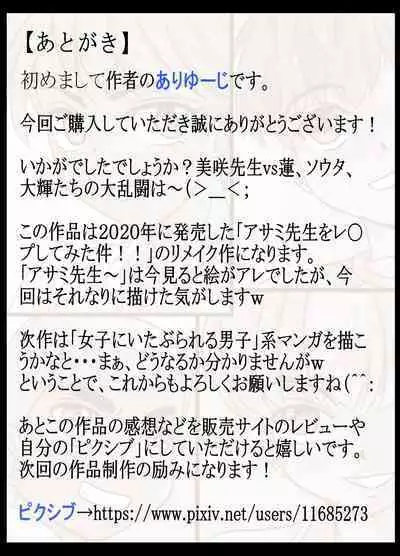 【あとがき】
初めまして作者のありゆーじです。
今回ご購入していただき誠にありがとうございます！
いかがでしたでしょうか？美咲先生vs蓮、ソウタ、
大輝たちの大乱闘は～(＞＿＜；
この作品は2020年に発売した「アサミ先生をレ〇
プしてみた件！！」のリメイク作になります。
「アサミ先生～」は今見ると絵がアレでしたが、今
回はそれなりに描けた気がしますw
次作は「女子にいたぶられる男子」系マンガを描こ
うかなと・・・まぁ、どうなるか分かりませんがw
ということで、これからもよろしくお願いしますね(^^:
あとこの作品の感想などを販売サイトのレビューや
自分の「ピクシブ」にしていただけると嬉しいです。
次回の作品制作の励みになります！
ピクシブ→https://www.pixiv.net/users/11685273